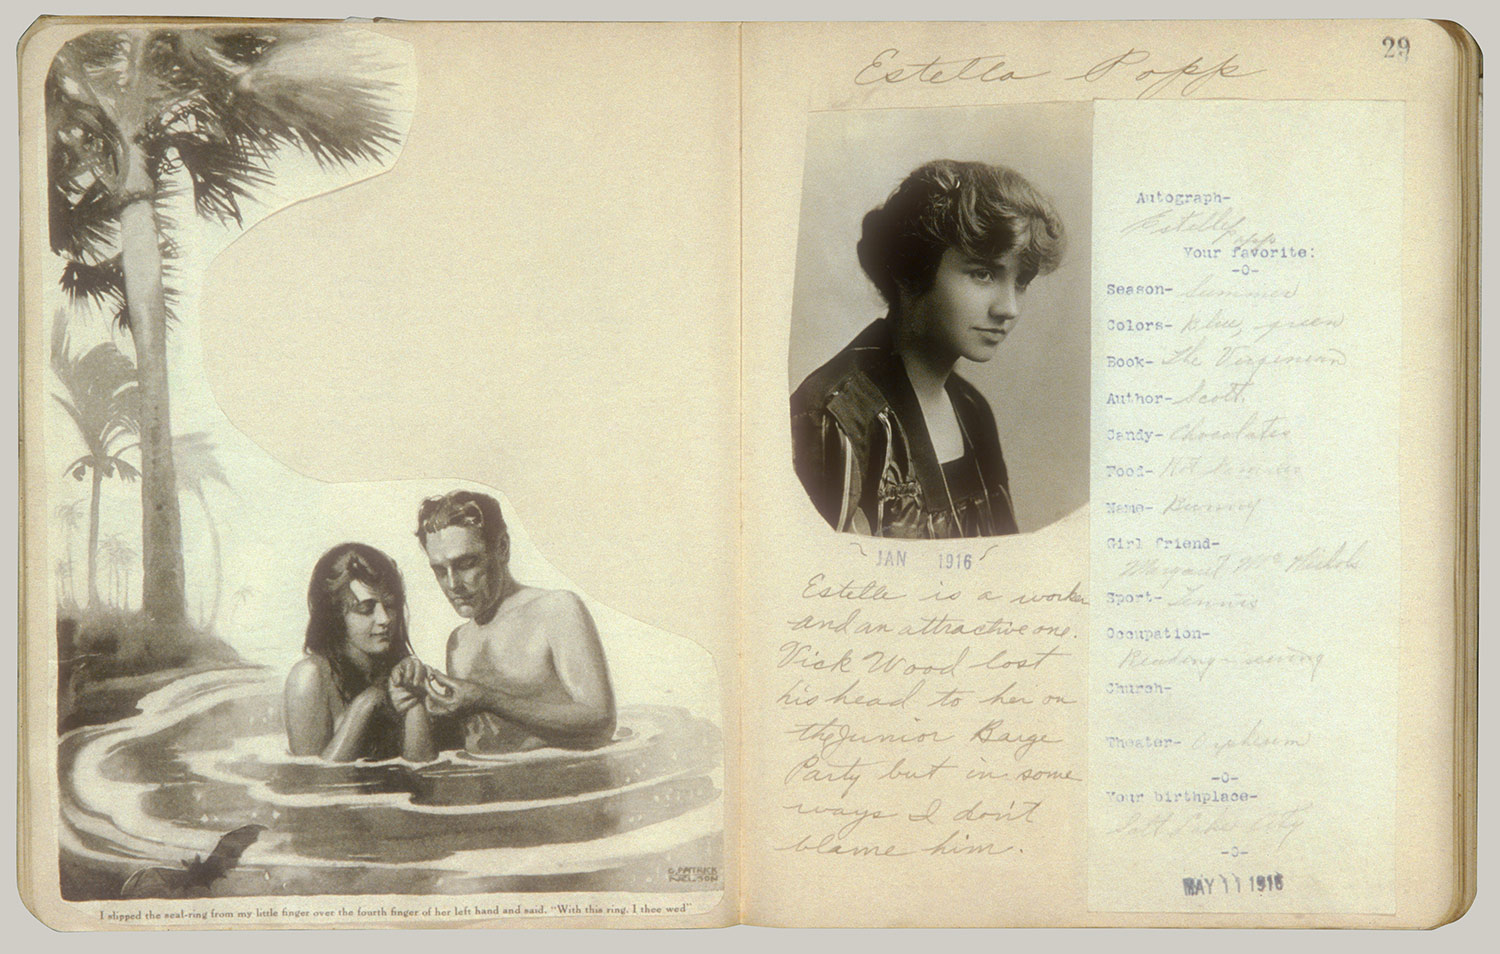 G. PATRICK
NELSON
I slipped the seal-ring from my little finger over the fourth finger of her left hand and said, "With this ring, I thee wed"
29
Estella Popp
JAN 1916
Estelle is a worker
and an attractive one.
Vick Wood lost
his head to her on
the Junior Barge
Party but in some
ways I don't
blame him.
Autograph-
Estelle Popp
Your favorite:
-O-
Season- Summer
Colors- Blue, green
Book- The Virginian
Author- Scott.
Candy- Chocolates
Food- Hot Tamales
Name- Bunny
Girl friend-
Margaret McNichols
Sport- Tennis
Occupation-
Reading-sewing
Church-
Theater- Orpheum
-O-
Your birthplace-
Salt Lake City
-O-
MAY 11 1916